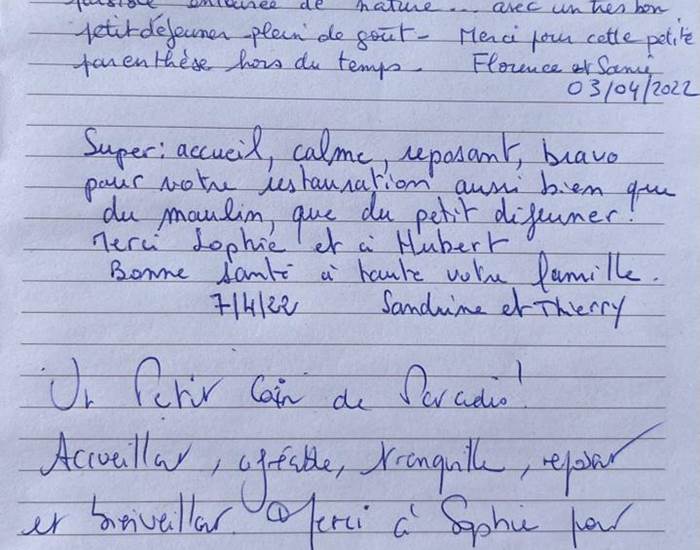 paisible entourée de nature ... avec un très bon
petit déjeuner plein de goût - Merci pour cette petite
parenthèse hors du temps - Florence et
03/04/2022
Super : accueil, calme, reposant, bravo
pour votre restauration aussi bien que
du moulin, que du petit déjeuner !
Merci Sophie et à Hubert
Bonne santé à toute votre famille.
7/4/22 Sandrine et Thierry
Un Petit Coin de Paradis !
Accueillant, agréable, tranquille, reposant
et bienveillant. Merci à Sophie pour